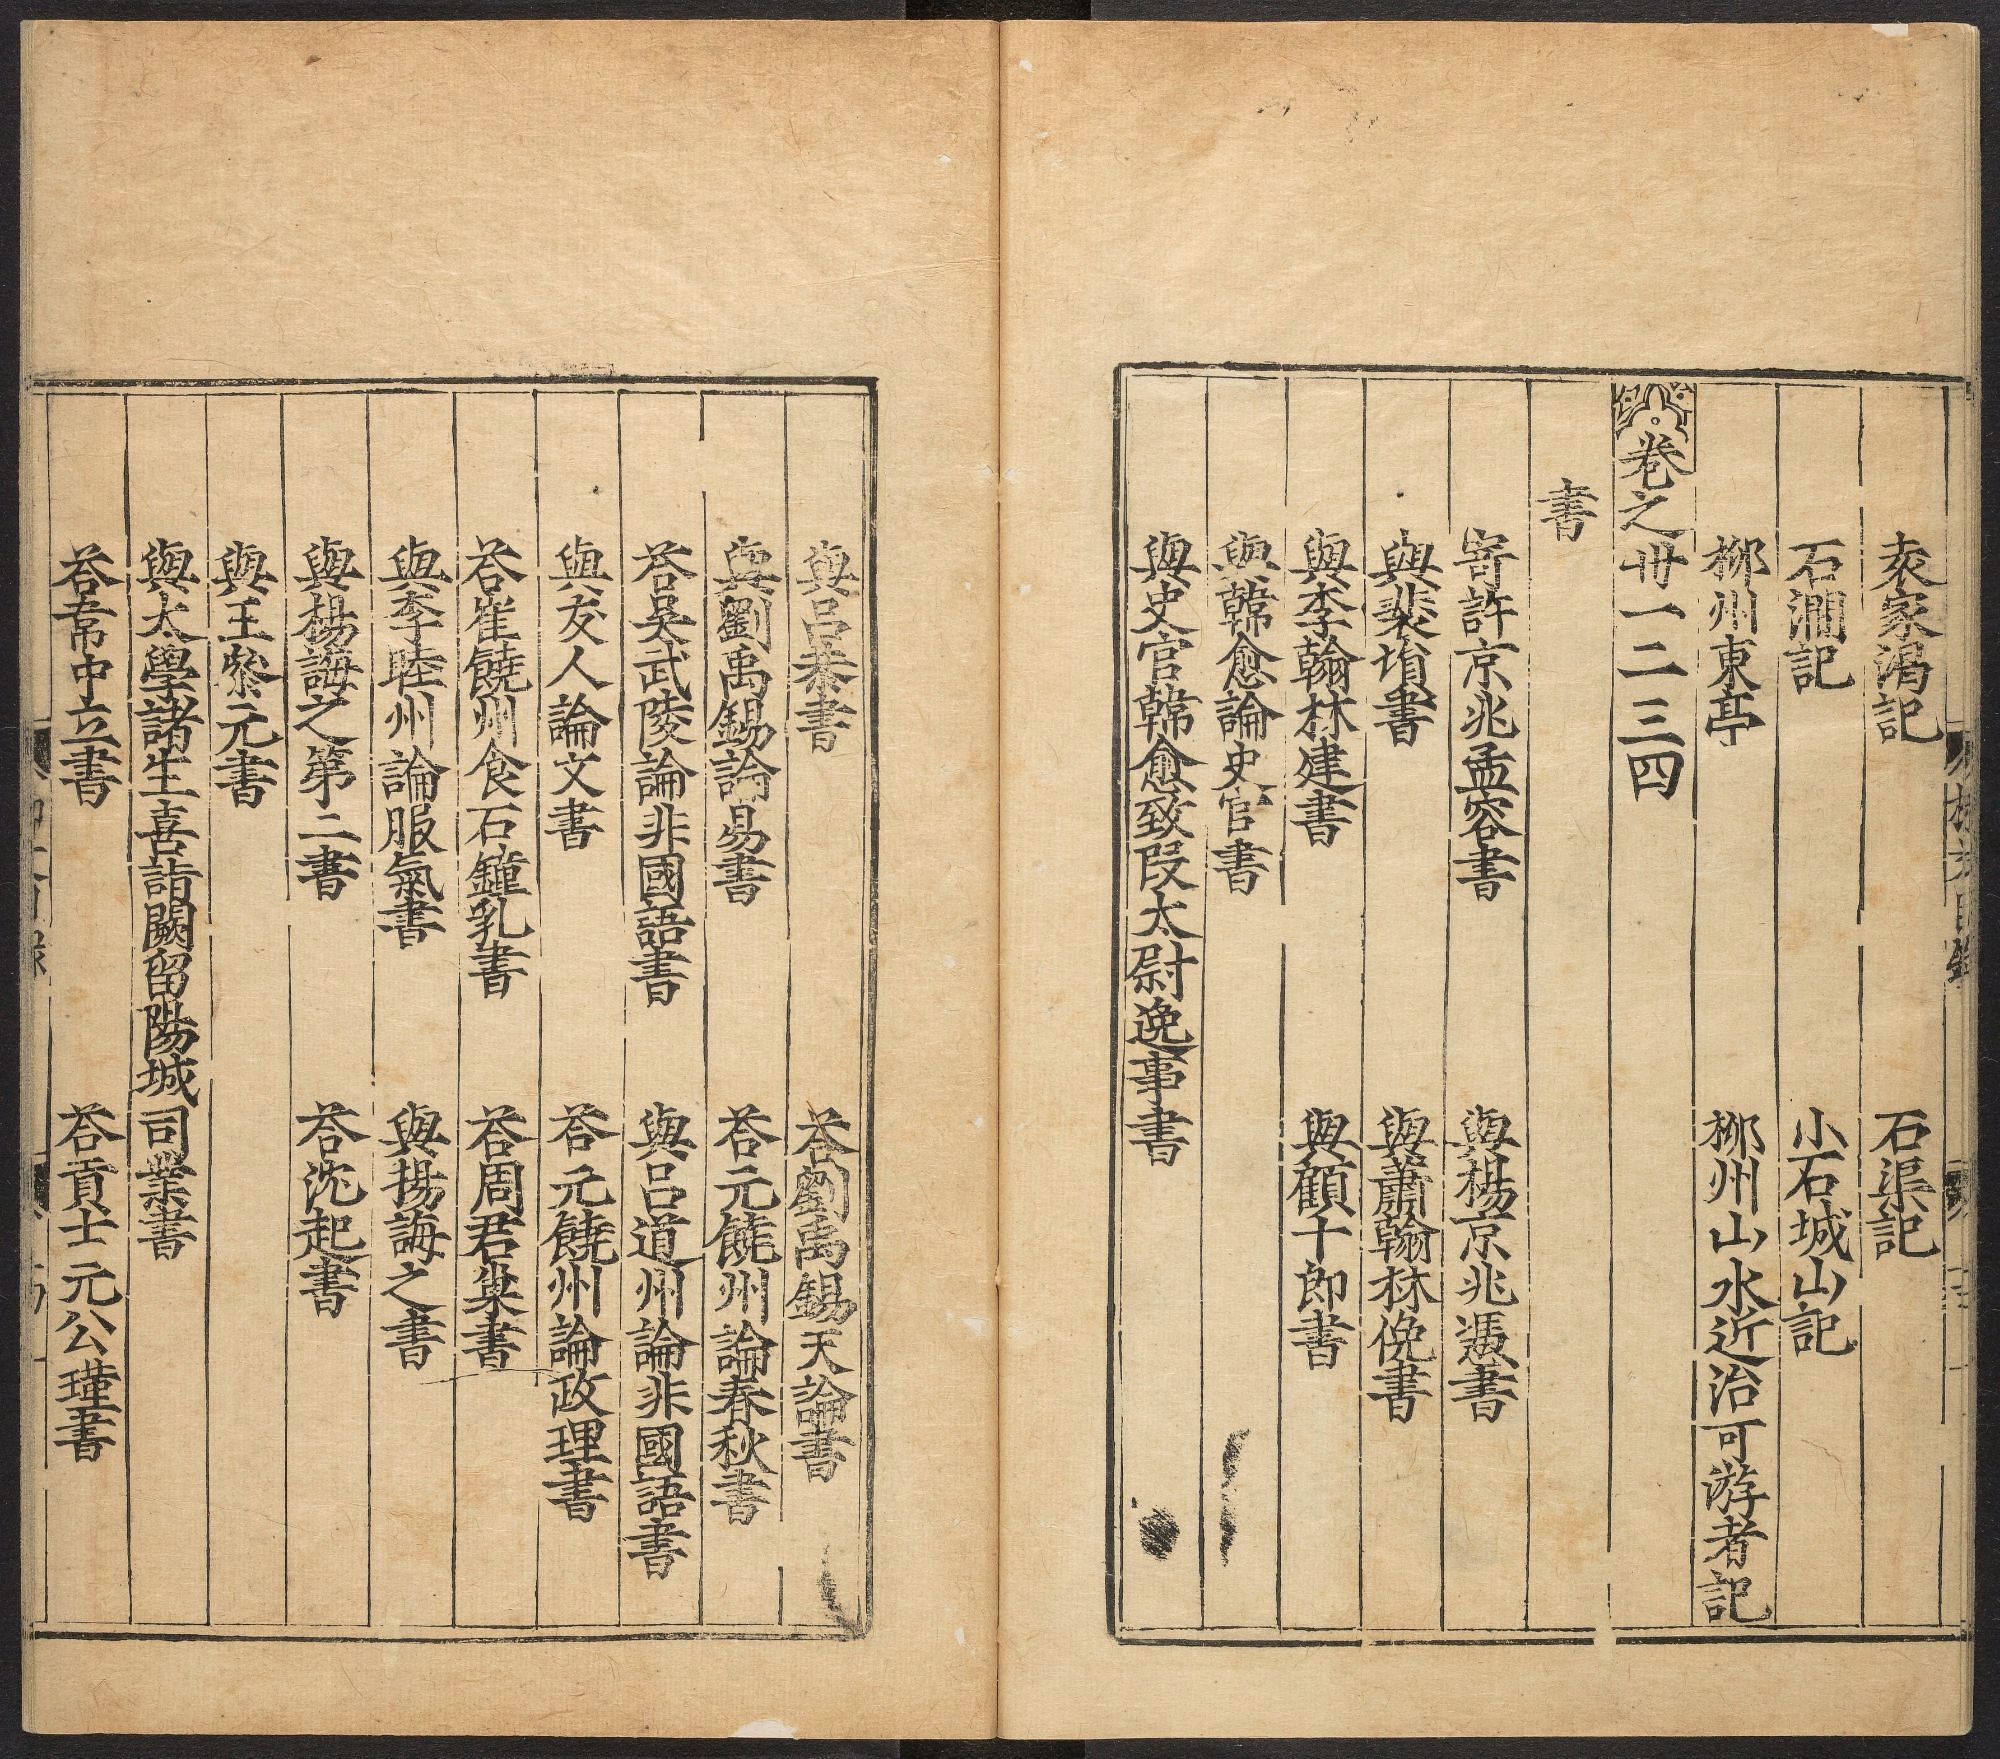 袁家渴記　石渠記
石澗記　小石城山記
柳州東亭　柳州山水近治可游者記
卷之卅一二三四
書
寄許京兆孟容書　與楊京兆憑書
與裴塤書　與蕭翰林俛書
與李翰林建書　與顧十郎書
與韓愈論史官書
與史官韓愈致段太尉逸事書
與呂恭書　荅劉禹錫天論書
與劉禹錫論易書　荅元饒州論春秋書
荅吳武陵論非國語書　與呂道州論非國語書
與友人論文書　荅元饒州論政理書
荅崔饒州食石鍾乳書　荅周君巢書
與李睦州論服氣書　與揚誨之書
與楊誨之第二書　荅沈起書
與王參元書
與太學諸生喜詣闕留陽城司業書
荅韋中立書　荅貢士元公瑾書